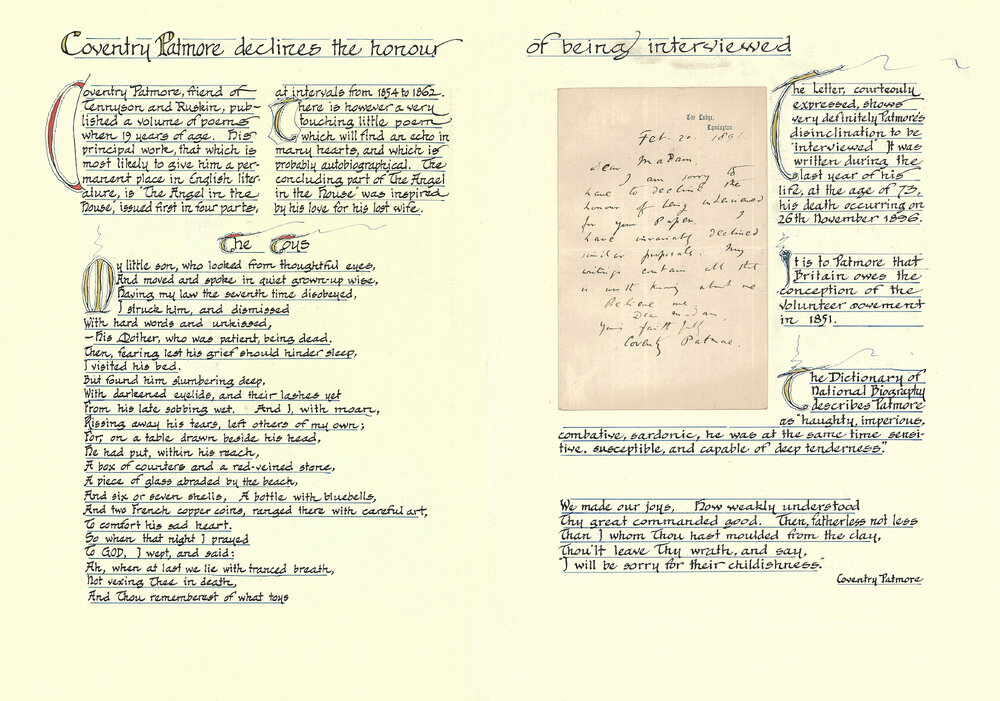 Coventry Patmore declines the honour
of being interviewed
Coventry Patmore, friend of
Tennyson and Ruskin, pub-
lished a volume of poems
when 19 years of age. His
principal work, that which is
most likely to give him a per-
manent place in English liter-
ature, is 'The Angel in the
House', issued first in four parts,
at intervals from 1854 to 1862.
There is however a very
touching little poem
which will find an echo in
many hearts, and which is
probably autobiographical. The
concluding part of 'The Angel
in the House' was inspired
by his love for his lost wife.
The Toys
My little son, who looked from thoughtful eyes,
And moved and spoke in quiet grown-up wise,
Having my law the seventh time disobeyed,
I struck him, and dismissed
With hard words and unkissed,
–His Mother, who was patient, being dead.
Then, fearing lest his grief should hinder sleep,
I visited his bed.
But found him slumbering deep,
With darkened eyelids, and their lashes yet
From his late sobbing wet. And I, with moan,
Kissing away his tears, left others of my own;
For, on a table drawn beside his head,
He had put, within his reach,
A box of counters and a red-veined stone,
A piece of glass abraded by the beach,
And six or seven shells, A bottle with bluebells,
And two French copper coins, ranged there with careful art,
To comfort his sad heart.
So when that night I prayed
To GOD, I wept, and said:
Ah, when at last we lie with tranced breath,
Not vexing Thee in death,
And Thou rememberest of what toys
The Lodge,
Lymington.
Feb. 20. 1896.
Dear Madam
I am sorry to
have to decline the
honour of being interviewed
for your Paper. I
have invariably declined
similar proposals. My
writings contain all that
is worth knowing about me
Believe me
Dear Madam,
Yours faithfully
Coventry Patmore.
The Letter, courteouly
expressed, shows
very definitely Patmore's
disinclination to be
'interviewed' It was
written during the
last year of his
life, at the age of 73,
his death occurring on
26th November 1896.
It is to Patmore that
Britain owes the
conception of the
Volunteer movement
in 1851.
The Dictionary of
National Biography
describes Patmore
as "haughty, imperious,
combative, sardonic, he was at the same time sensi-
tive, susceptible, and capable of deep tenderness."
We made our joys, How weakly understood
Thy great commanded good. Then, fatherless not less
Than I whom Thou hast moulded from the clay,
Thou'lt leave Thy wrath, and say,
'I will be sorry for their childishness."
Coventry Patmore